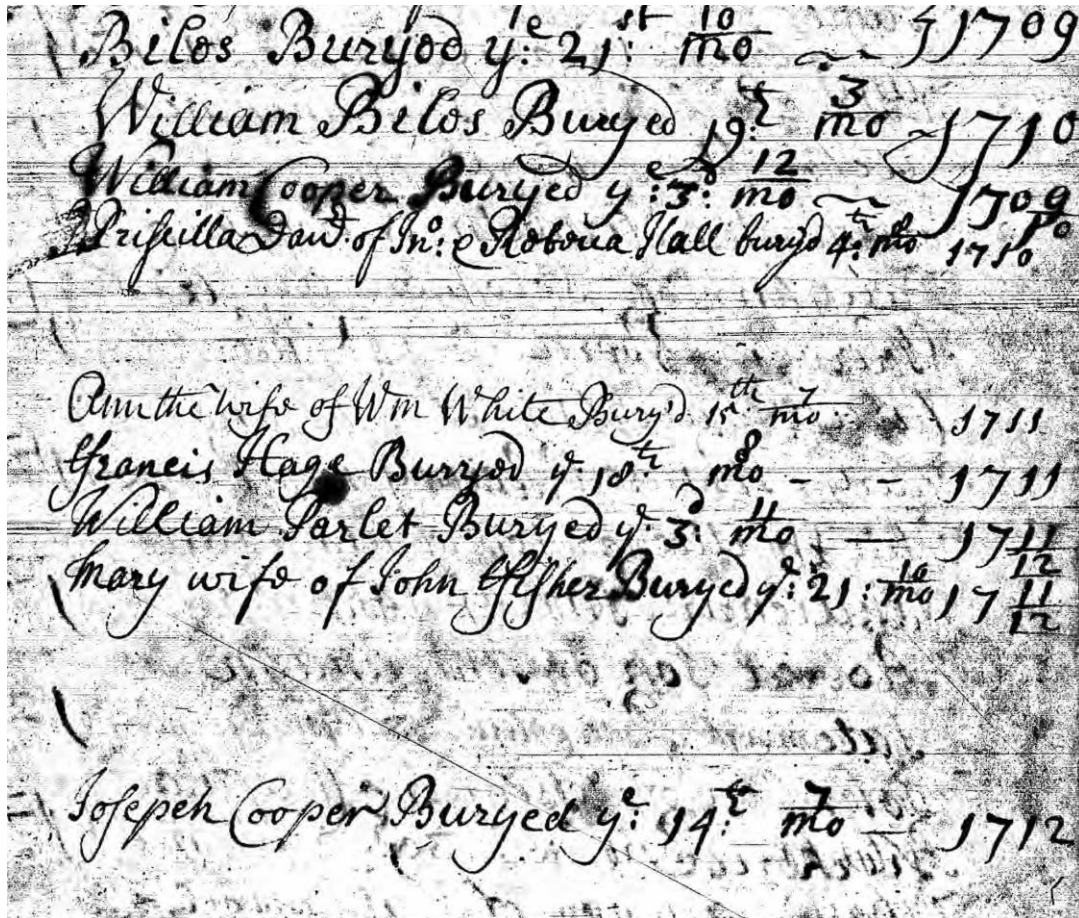 Biles Buryed yᵉ: 21ˢᵗ: 10/mo 1709
William Biles Buryed 19:ᵗʰ 3/mo 1710
William Cooper Buryed yᵉ: 3ᵈ: 12/mo 1709/10
Priscilla Dauᵗ. of Jnᵒ: & Rebecca Hall buryd 4:ᵗʰ mo 1710
Ann the wife of Wm White Bury'd 15ᵗʰ 7/mo 1711
Francis Hage Burryed yᵉ 18ᵗʰ 8/mo - - 1711
William Parlet Buryed yᵉ 3:ᵈ 11/mo — 1711/12
Mary wife of John Fisher Buryed yᵉ: 21: 10/mo 1711/12
Josepeh Cooper Buryed yᵉ: 14:ᵗʰ 7/mo — 1712